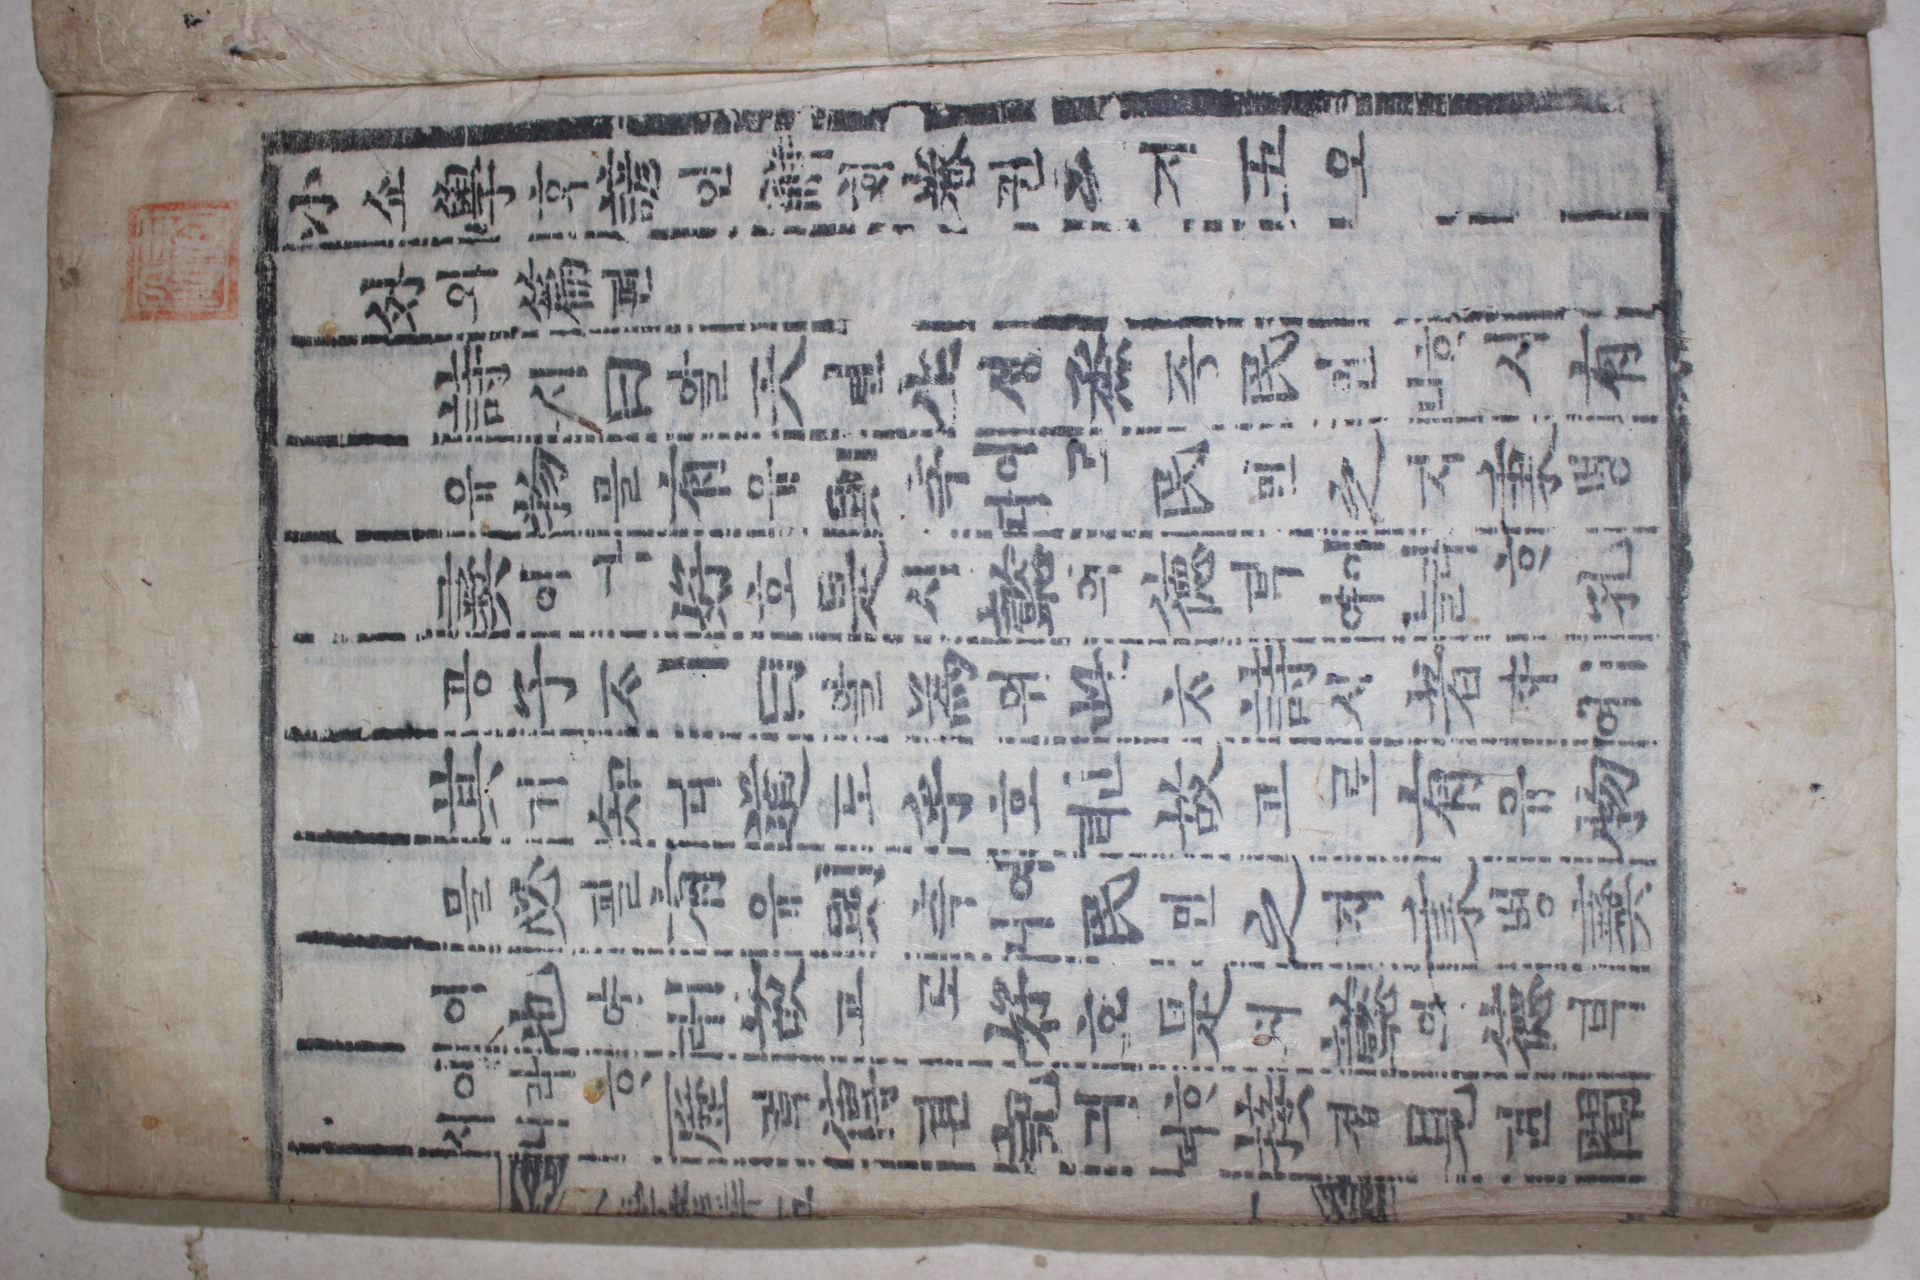 小쇼學학諺언解해卷권之지五오
外외篇편
詩시曰왈天텬生ᄉᆡᆼ烝증民민ᄒᆞ시니有
유物믈有유則측이로다民민之지秉병
彝이라好호是시懿의德덕이라ᄒᆞ야ᄂᆞᆯ孔
공子ᄌᆞㅣ曰왈爲위此ᄎᆞ詩시者쟈ㅣ여
其기知디道도乎호뎌故고로有유物
믈必필有유則측이니民민之지秉병彝
이也야ㅣ라故고로好호是시懿의德덕
이라ᄒᆞ시니歷력傳뎐記긔ᄒᆞ며接졉見견聞